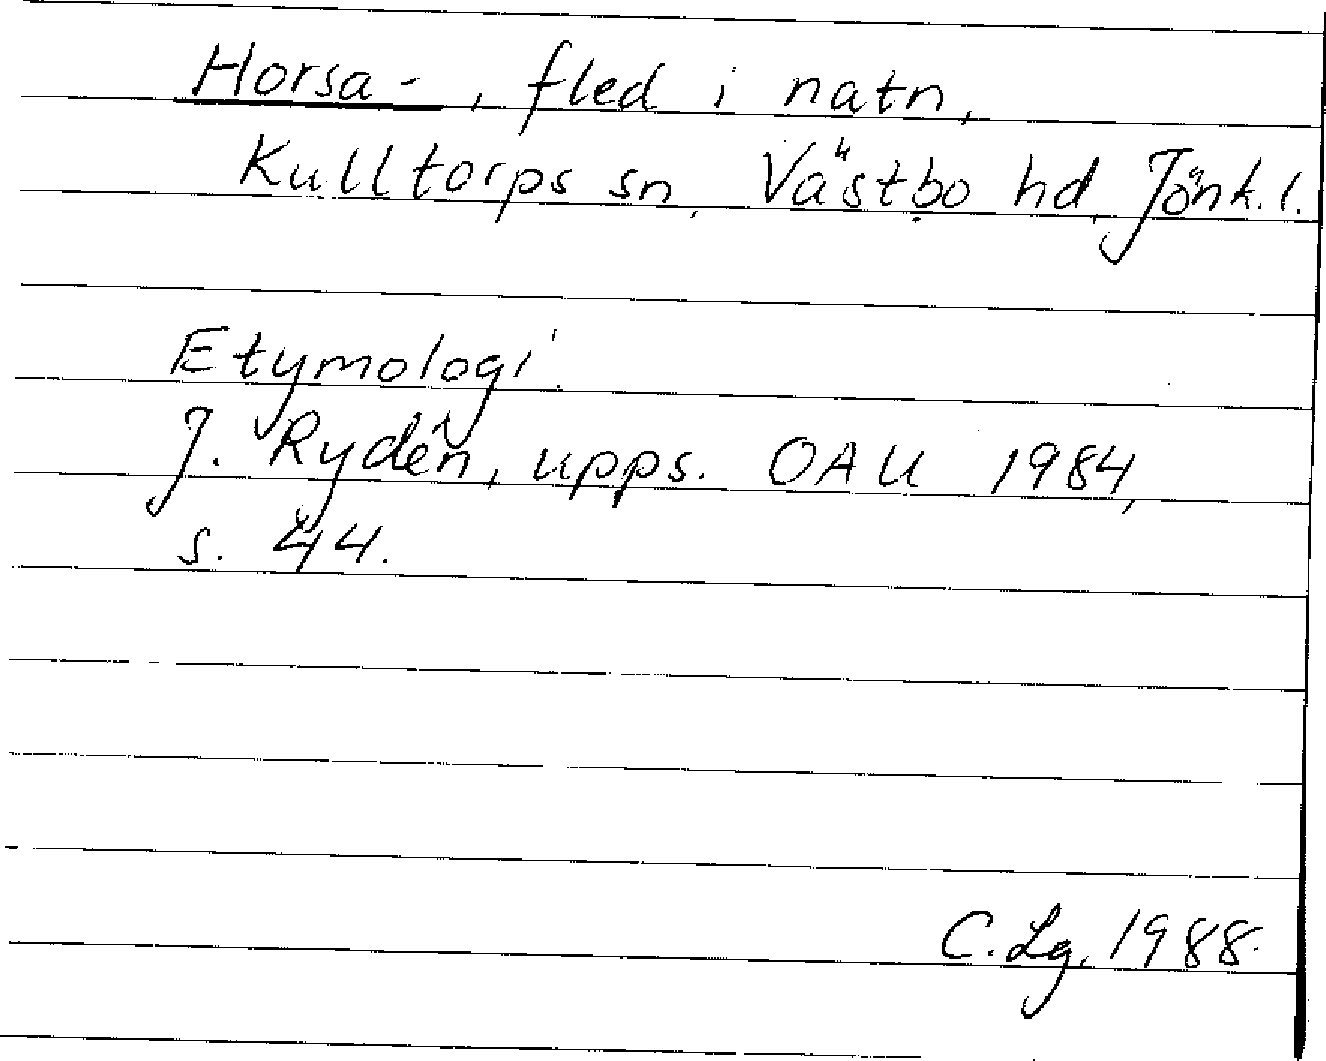 Horsa-, fled i natn,
Kulltorps sn, Västbo hd, Jönk. l.
Etymologi.
J. Rydén, upps. OAU 1984,
s. 44.
C. Lg. 1988.